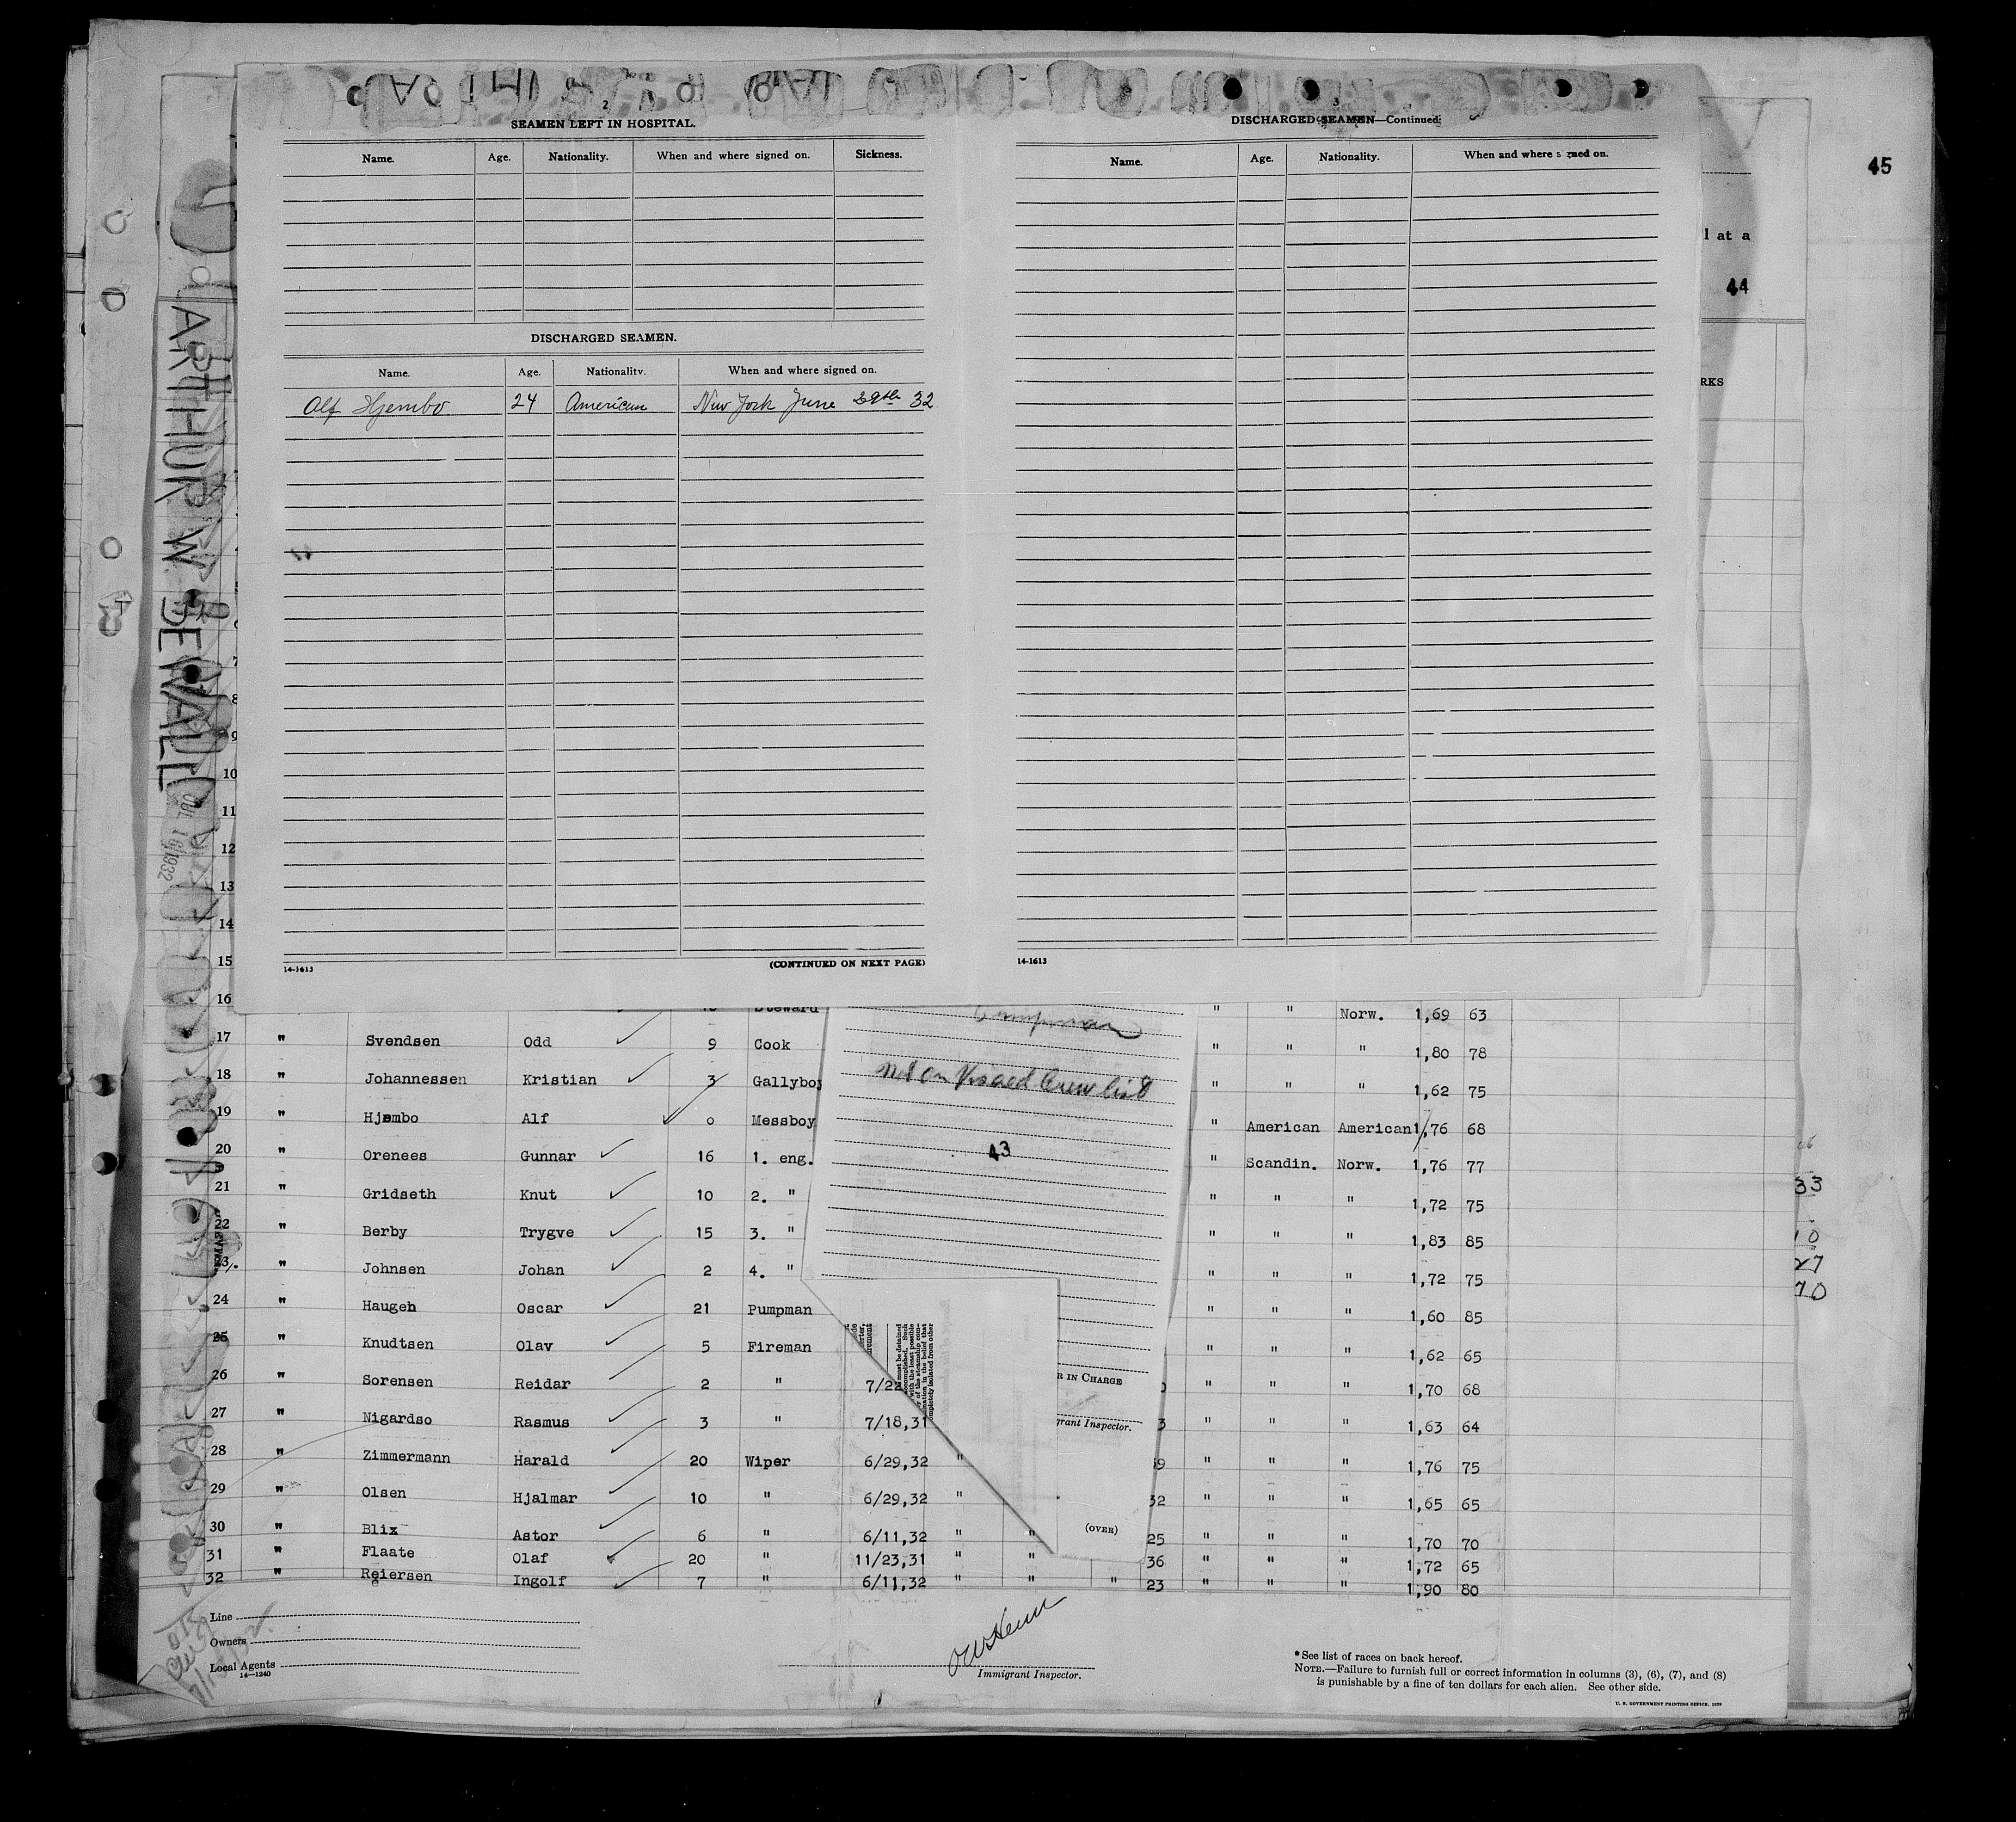 2
SEAMEN LEFT IN HOSPITAL.
Name. Age. Nationality. When and where signed on. Sickness.
DISCHARGED SEAMEN.
Name. Age. Nationality. When and where signed on.
Alf Hjembo 24 American New York June 29th 32
14-1613 (CONTINUED ON NEXT PAGE)
3
DISCHARGED SEAMEN—Continued.
Name. Age. Nationality. When and where signed on.
14-1613
45
l at a
44
RKS
ARTHUR W SEWALL
JUL 16 1932
7
8
9
10
11
12
13
14
15
16 Steward " " Norw. 1,69 63
17 " Svendsen Odd 9 Cook " " " 1,80 78
18 " Johannessen Kristian 3 Gallyboy " " " 1,62 75
19 " Hjembo Alf 0 Messboy " American American 1,76 68
20 " Orenees Gunnar 16 1. eng. " Scandin. Norw. 1,76 77
21 " Gridseth Knut 10 2. " " " " 1,72 75
22 " Berby Trygve 15 3. " " " " 1,83 85
23 " Johnsen Johan 2 4. " " " " 1,72 75
24 " Haugen Oscar 21 Pumpman " " " 1,60 85
25 " Knudtsen Olav 5 Fireman " " " 1,62 65
26 " Sorensen Reidar 2 " 7/22 " " " 1,70 68
27 " Nigardso Rasmus 3 " 7/18,31 3 " " " 1,63 64
28 " Zimmermann Harald 20 Wiper 6/29,32 " 39 " " " 1,76 75
29 " Olsen Hjalmar 10 " 6/29,32 " 32 " " " 1,65 65
30 " Blix Astor 6 " 6/11,32 " " 25 " " " 1,70 70
31 " Flaate Olaf 20 " 11/23,31 " " 36 " " " 1,72 65
32 " Reiersen Ingolf 7 " 6/11,32 " " " 23 " " " 1,90 80
Pumpman
Not on Visaed Crew list
43
R IN CHARGE
grant Inspector.
(OVER)
must be detained
accomplished. Such
with the least possible
of the steamship com-
nation in the belief that
mpletely isolated from other
33
10
27
70
Line
Owners
Local Agents
14—1240
Immigrant Inspector.
*See list of races on back hereof.
NOTE.—Failure to furnish full or correct information in columns (3), (6), (7), and (8)
is punishable by a fine of ten dollars for each alien. See other side.
U. S. GOVERNMENT PRINTING OFFICE, 1929